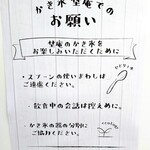 かき氷 埜庵での
お願い
埜庵のかき氷を
お楽しみいただくために
・スプーンの使いまわしは
ご遠慮ください。
ひとり1つ
・飲食中の会話は控えめに。
・かき氷の器の分別に
ご協力ください。